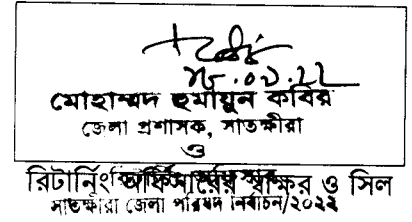 ১৮.০৯.২২
মোহাম্মদ হুমায়ুন কবির
জেলা প্রশাসক, সাতক্ষীরা
ও
রিটার্নিং অফিসারের স্বাক্ষর ও সিল
সাতক্ষীরা জেলা পরিষদ নির্বাচন/২০২২